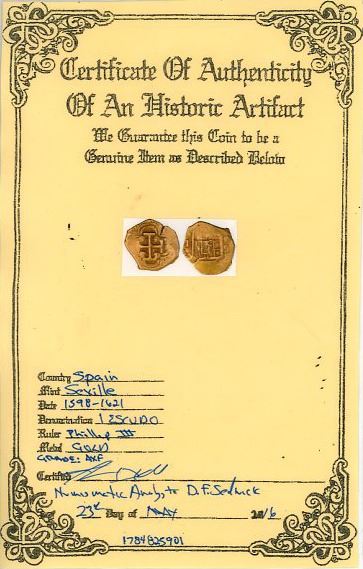 Certificate Of Authenticity
Of An Historic Artifact
We Guarantee this Coin to be a
Genuine Item as Described Below
Country Spain
Mint Seville
Date 1598-1621
Denomination 1 ESCUDO
Ruler Phillip III
Metal GOLD
GRADE: AXF
Certified
Numismatic Analyst D.F. Sedwick
23rd Day of MAY 2016
1784825901